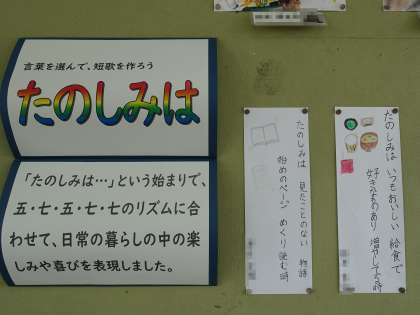 言葉を選んで、短歌を作ろう
たのしみは
「たのしみは…」という始まりで、
五・七・五・七・七のリズムに合
わせて、日常の暮らしの中の楽
しみや喜びを表現しました。
たのしみは いつもおいしい 給食で
好きなものあり 増やしてる時
たのしみは 見たことのない 物語
始めのページ めくり読む時